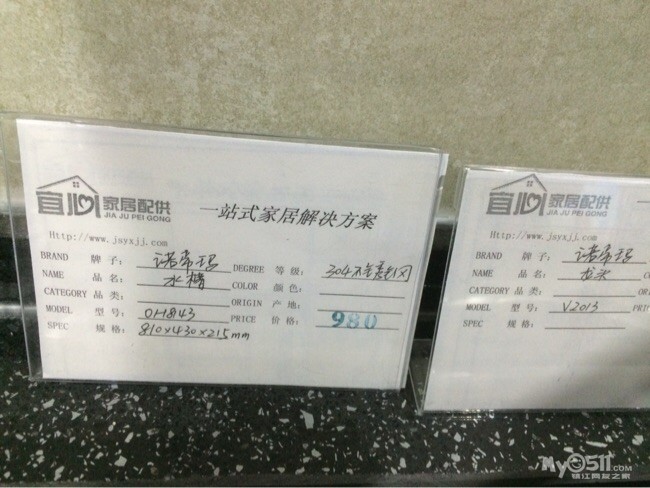 宜心 家居配供
JIA JU PEI GONG
一站式家居解决方案
Http://www.jsyxjj.com
BRAND 牌子: 诺帝玛 DEGREE 等级: 304不锈钢
NAME 品名: 水槽 COLOR 颜色:
CATEGORY 品类: ORIGIN 产地:
MODEL 型号: OH843 PRICE 价格: 980
SPEC 规格: 810×430×215mm
宜心 家居配供
JIA JU PEI GONG
Http://www.jsyxjj.com
BRAND 牌子: 诺帝玛
NAME 品名: 龙头
CATEGORY 品类:
MODEL 型号: V2013
SPEC 规格:
My0511.com
镇江网友之家